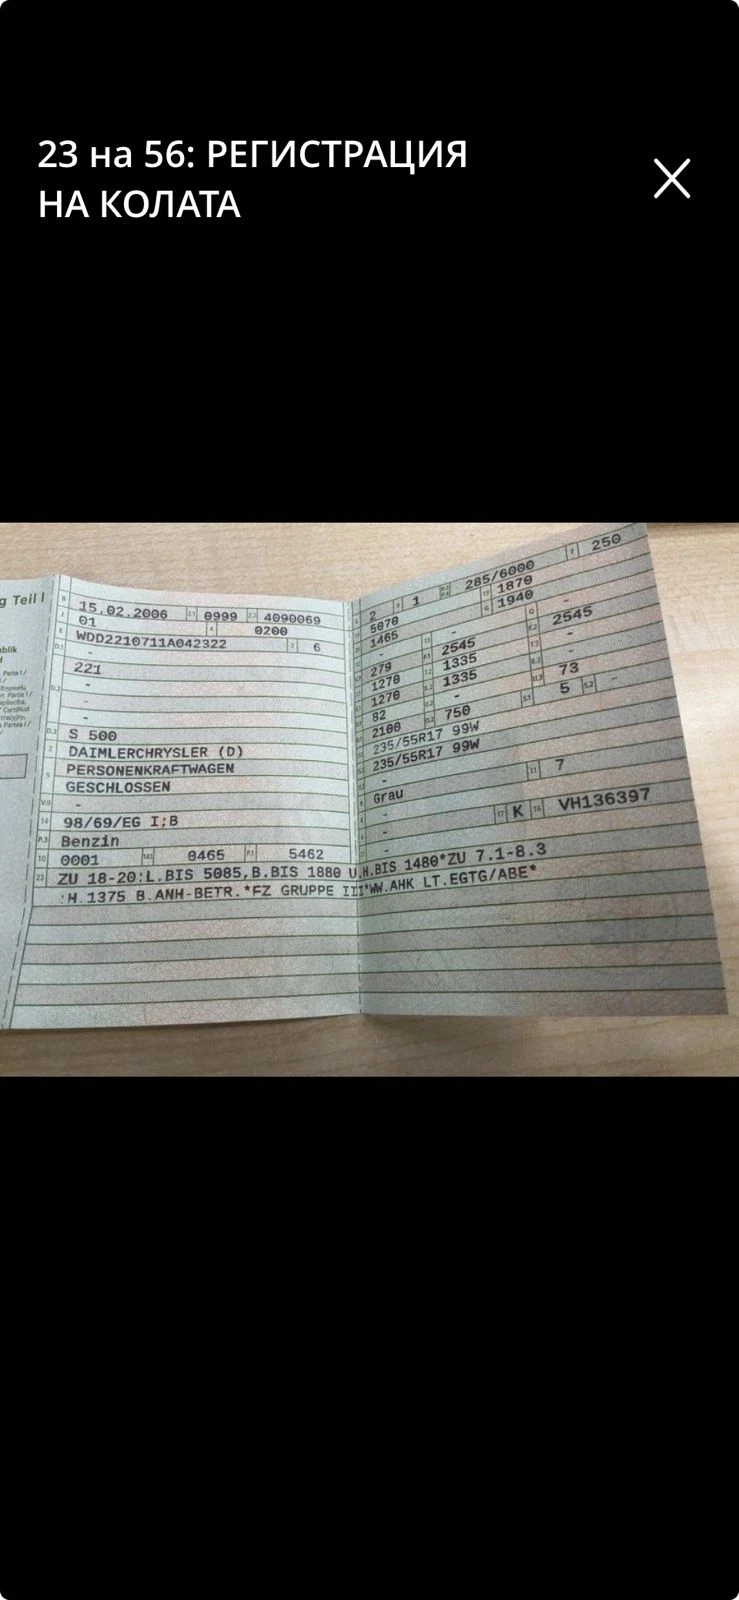 23 на 56: РЕГИСТРАЦИЯ
НА КОЛАТА
g Teil I
15.02.2006 2.1 0999 2.2 4090069
01 4 0200
WDD2210711A042322 3 6
-
221
-
-
-
S 500
DAIMLERCHRYSLER (D)
PERSONENKRAFTWAGEN
GESCHLOSSEN
-
98/69/EG I;B
Benzin
0001 14.1 0465 P.1 5462
2 9 1 285/6000 T 250
5070 19 1870
1465 G 1940
- 13 - Q -
279 2545 2545
1270 1335 -
1270 1335 -
82 - 73
2100 750 5 -
235/55R17 99W
235/55R17 99W
-
Grau 11 7
-
- 17 K 16 VH136397
-
22 ZU 18-20:L.BIS 5085,B.BIS 1880 U.H.BIS 1480*ZU 7.1-8.3
:H.1375 B.ANH-BETR.*FZ GRUPPE III*WW.AHK LT.EGTG/ABE*